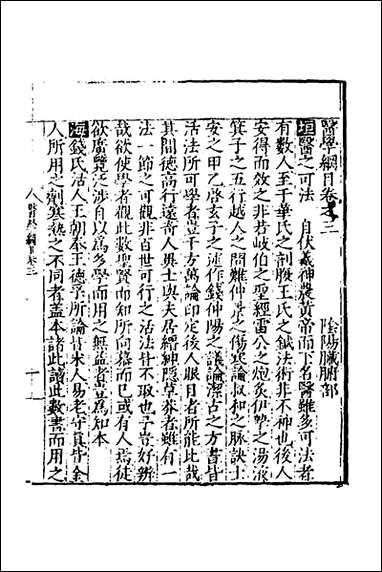 醫學綱目卷之三　陰陽臟腑部
垣醫之可法　自伏羲神農黃帝而下名醫雖多可法者
有數人至于華氏之剖腹王氏之鍼法術非不神也後人
安得而效之非若岐伯之聖經雷公之炮炙伊摯之湯液
箕子之五行越人之問難仲景之傷寒論叔和之脉訣士
安之甲乙啓玄子之述作錢仲陽之議論潔古之方書皆
活法所可學者豈千方萬論印定後人眼目者所能比哉
其間德高行遠奇人異士與夫居縉紳隱草莽者雖有一
法一節之可觀非百世可行之活法皆不取也予豈好辨
哉欲使學者觀此數聖賢而知所向慕而已或有人焉徒
欲廣覽泛涉自以爲多學而用之無益者豈爲知本
海錢氏活人王朝奉王德孚所論皆宋人易老守真皆金
人所用之劑寒熱之不同者蓋本諸此讀此數書而用之
醫學綱目卷三